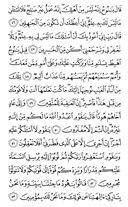 قَالَ يَٰنُوحُ إِنَّهُۥ لَيْسَ مِنْ أَهْلِكَ إِنَّهُۥ عَمَلٌ غَيْرُ صَٰلِحٍ فَلَا تَسْـَٔلْنِ
مَا لَيْسَ لَكَ بِهِۦ عِلْمٌ إِنِّىٓ أَعِظُكَ أَن تَكُونَ مِنَ ٱلْجَٰهِلِينَ ٤٦
قَالَ رَبِّ إِنِّىٓ أَعُوذُ بِكَ أَنْ أَسْـَٔلَكَ مَا لَيْسَ لِى بِهِۦ عِلْمٌ وَإِلَّا
تَغْفِرْ لِى وَتَرْحَمْنِىٓ أَكُن مِّنَ ٱلْخَٰسِرِينَ ٤٧ قِيلَ يَٰنُوحُ ٱهْبِطْ
بِسَلَٰمٍ مِّنَّا وَبَرَكَٰتٍ عَلَيْكَ وَعَلَىٰٓ أُمَمٍ مِّمَّن مَّعَكَ
وَأُمَمٌ سَنُمَتِّعُهُمْ ثُمَّ يَمَسُّهُم مِّنَّا عَذَابٌ أَلِيمٌ ٤٨ تِلْكَ
مِنْ أَنۢبَآءِ ٱلْغَيْبِ نُوحِيهَآ إِلَيْكَ مَا كُنتَ تَعْلَمُهَآ أَنتَ
وَلَا قَوْمُكَ مِن قَبْلِ هَٰذَا فَٱصْبِرْ إِنَّ ٱلْعَٰقِبَةَ لِلْمُتَّقِينَ ٤٩
وَإِلَىٰ عَادٍ أَخَاهُمْ هُودًا قَالَ يَٰقَوْمِ ٱعْبُدُوا۟ ٱللَّهَ مَا لَكُم مِّنْ
إِلَٰهٍ غَيْرُهُۥٓ إِنْ أَنتُمْ إِلَّا مُفْتَرُونَ ٥٠ يَٰقَوْمِ لَآ أَسْـَٔلُكُمْ
عَلَيْهِ أَجْرًا إِنْ أَجْرِىَ إِلَّا عَلَى ٱلَّذِى فَطَرَنِىٓ أَفَلَا تَعْقِلُونَ ٥١
وَيَٰقَوْمِ ٱسْتَغْفِرُوا۟ رَبَّكُمْ ثُمَّ تُوبُوٓا۟ إِلَيْهِ يُرْسِلِ ٱلسَّمَآءَ
عَلَيْكُم مِّدْرَارًا وَيَزِدْكُمْ قُوَّةً إِلَىٰ قُوَّتِكُمْ وَلَا تَتَوَلَّوْا۟
مُجْرِمِينَ ٥٢ قَالُوا۟ يَٰهُودُ مَا جِئْتَنَا بِبَيِّنَةٍ وَمَا نَحْنُ
بِتَارِكِىٓ ءَالِهَتِنَا عَن قَوْلِكَ وَمَا نَحْنُ لَكَ بِمُؤْمِنِينَ ٥٣